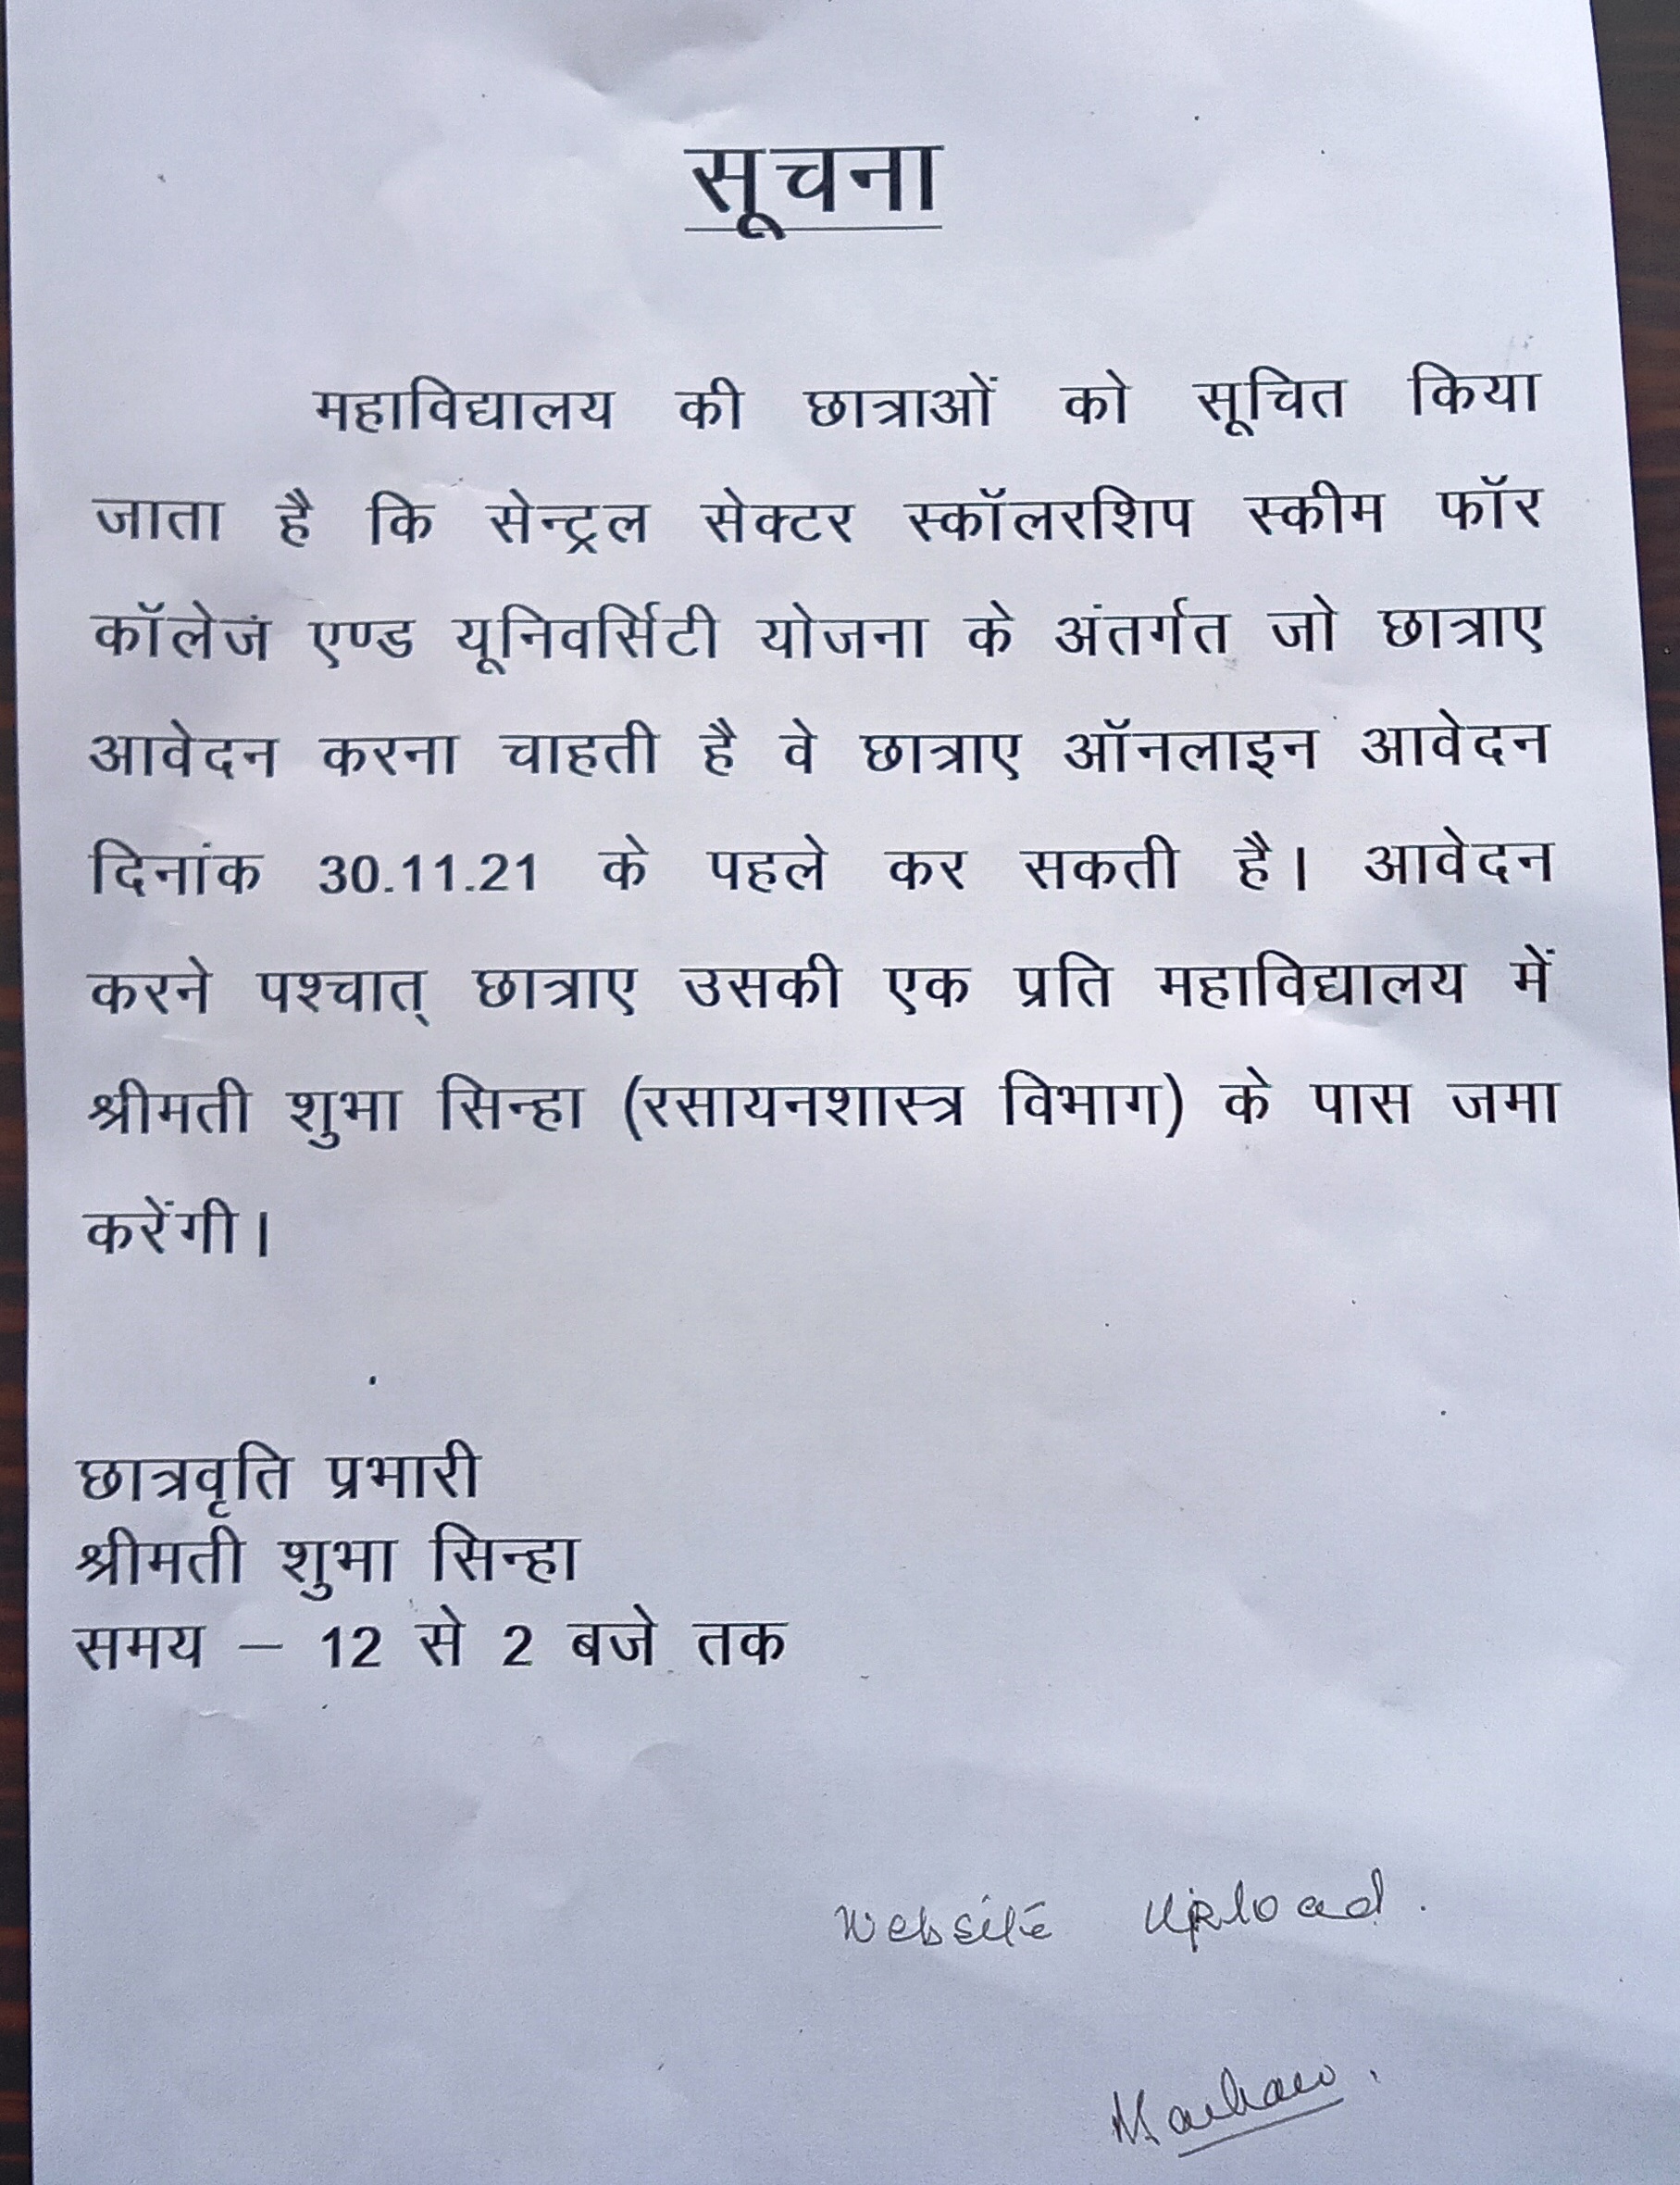 सूचना
महाविद्यालय की छात्राओं को सूचित किया
जाता है कि सेन्ट्रल सेक्टर स्कॉलरशिप स्कीम फॉर
कॉलेज एण्ड यूनिवर्सिटी योजना के अंतर्गत जो छात्राए
आवेदन करना चाहती है वे छात्राए ऑनलाइन आवेदन
दिनांक 30.11.21 के पहले कर सकती है। आवेदन
करने पश्चात् छात्राए उसकी एक प्रति महाविद्यालय में
श्रीमती शुभा सिन्हा (रसायनशास्त्र विभाग) के पास जमा
करेंगी।
छात्रवृति प्रभारी
श्रीमती शुभा सिन्हा
समय – 12 से 2 बजे तक
Website Upload.